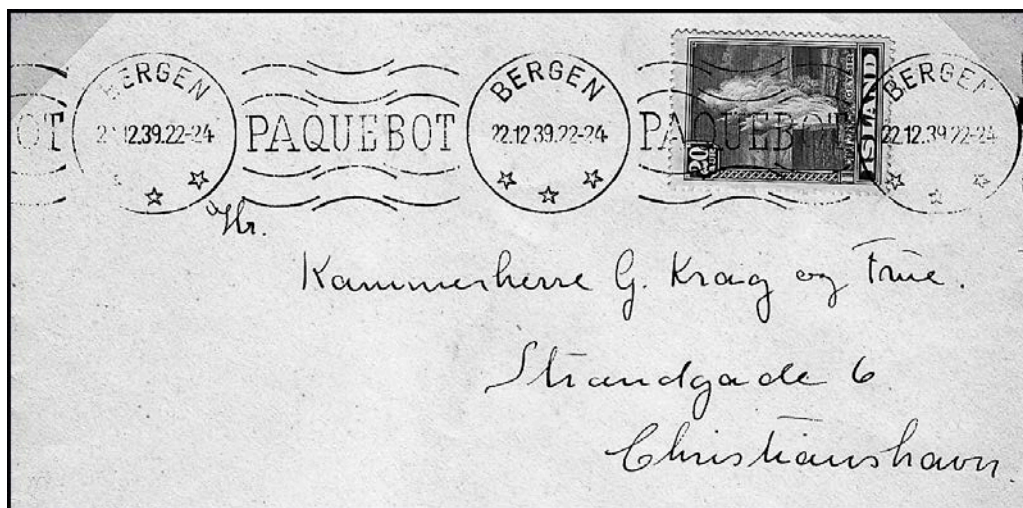 OT BERGEN 22.12.39.22-24 PAQUEBOT BERGEN 22.12.39.22-24 PAQUEBOT BERGEN 22.12.39.22-24
20 GEYSIR ÍSLAND
Hr.
Kammerherre G. Krag og Frue.
Strandgade 6
Christianshavn